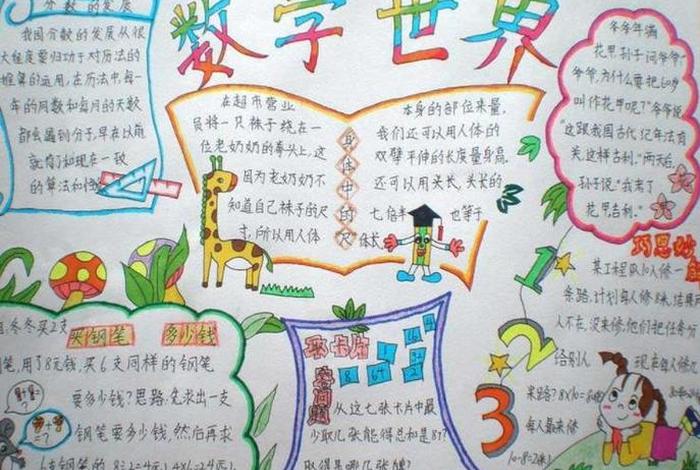 数学世界
分数的发展
我国分数的发展从很
大程度要归功于对历法的
推算的运用,在历法中每一
年的月数和每月的天数
都会遇到分子,早在以前
就有了和现在一致
的算法和
在超市营业
员将一只袜子绕在一
位老奶奶的拳头上,这
因为老奶奶不
知道自己袜子的尺
寸,所以用人体
身体中的"尺"
本身的部位来量,
我们还可以用人体的
双臂平伸的长度量身高,
还可以用头长,头长的
七倍半 也等于
身长
爷爷年满
花甲,孙子问爷爷:
爷爷,为什么要把60岁
叫作花甲呢?"爷爷说:
"这跟我国古代记年法有
关,这样吉利。"两天后,
孙子说:"我考了
花甲吉利。"
冬冬买2支
买钢笔 多少钱
笔,用了8元钱,买6支同样的钢笔
要多少钱?思路:先求出一支
钢笔要多少钱,然后再求
6支钢笔的 8÷2=4元 4×6=24元
取卡片
问题
1
4
16
8
64
2
从这七张卡片中最
少取几张能得总和是87?
取得是哪几张牌?
巧思妙
1
2
3
某工程队10人修一
条路,计划每人修8米,结果
人不在,没来修,他们把任务分
给别人 现在每人修几
米路?8×10=
每人每来修
10-8=2